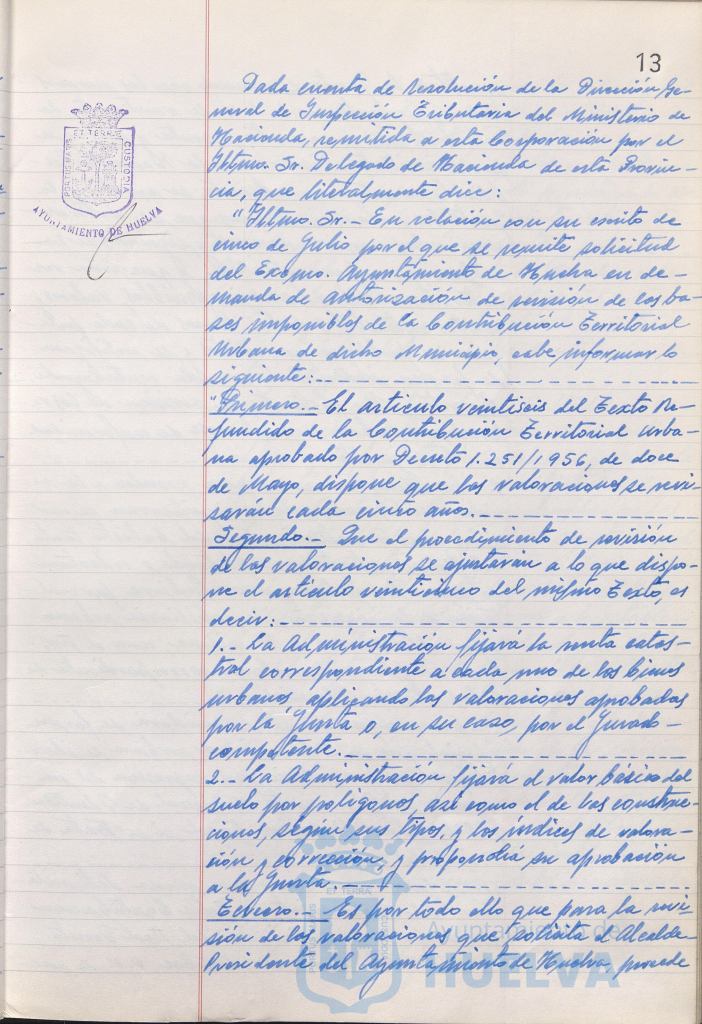 13
PORTUS MARIS ET TERRAE CUSTODIA
AYUNTAMIENTO DE HUELVA
Dada cuenta de Resolución de la Dirección Ge-
neral de Inspección Tributaria del Ministerio de
Hacienda, remitida a esta Corporación por el
Iltmo. Sr. Delegado de Hacienda de esta Provin-
cia, que literalmente dice:
"Iltmo. Sr.- En relación con su escrito de
cinco de Julio por el que se remite solicitud
del Excmo. Ayuntamiento de Huelva en de-
manda de autorización de revisión de las ba-
ses imponibles de la Contribución Territorial
Urbana de dicho Municipio, cabe informar lo
siguiente:
"Primero.- El artículo veintiseis del Texto Re-
fundido de la Contribución Territorial Urba-
na aprobado por Decreto 1.251/1956, de doce
de Mayo, dispone que las valoraciones se revi-
sarán cada cinco años.
Segundo.- Que el procedimiento de revisión
de las valoraciones se ajustarán a lo que dispo-
ne el artículo veinticinco del mismo Texto, es
decir:
1.- La Administración fijará la renta catas-
tral correspondiente a cada uno de los bienes
urbanos, aplicando las valoraciones aprobadas
por la Junta o, en su caso, por el Jurado-
competente.
2.- La Administración fijará el valor básico del
suelo por polígonos, así como el de las construc-
ciones, según sus tipos, y los índices de valora-
ción y corrección, y propondrá su aprobación
a la Junta.
Tercero.- Es por todo ello que para la revi-
sión de las valoraciones que solicita el Alcalde-
Presidente del Ayuntamiento de Huelva, procede
Ayuntamiento de
HUELVA